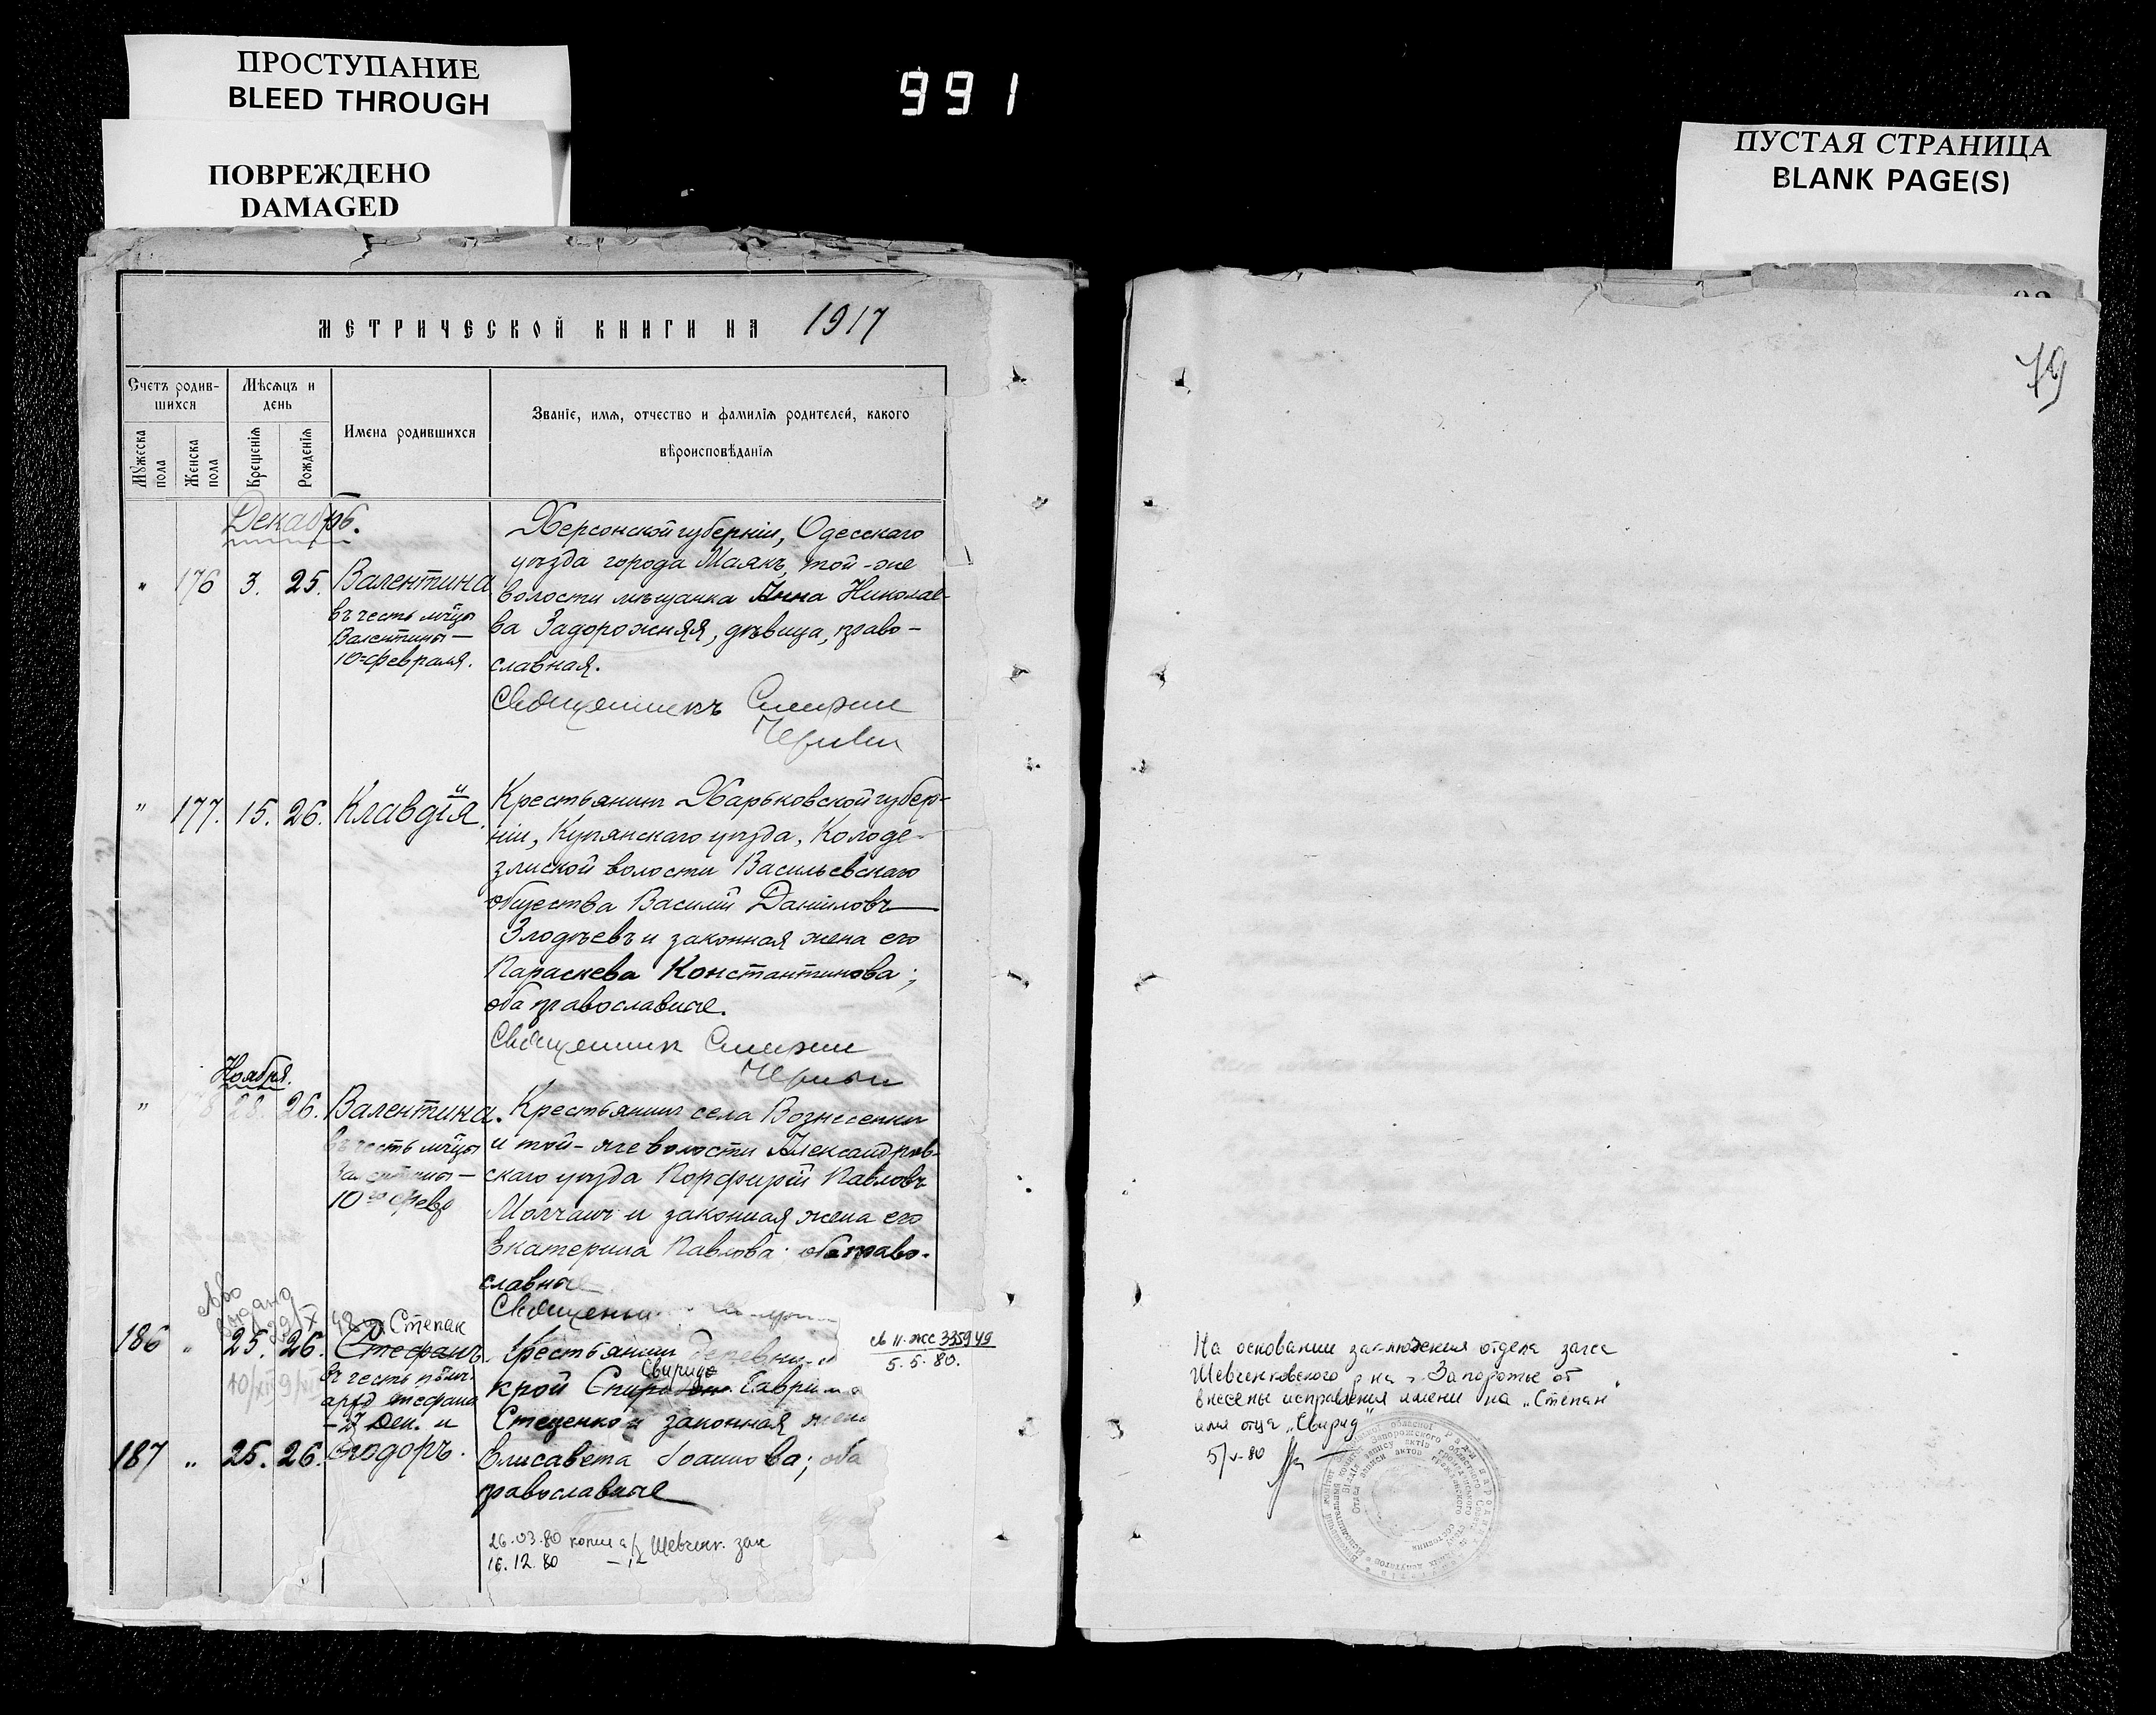 ПРОСТУПАНИЕ
BLEED THROUGH
ПОВРЕЖДЕНО
DAMAGED
991
ПУСТАЯ СТРАНИЦА
BLANK PAGE(S)
МЕТРИЧЕСКОЙ КНИГИ НА 1917
Счетъ родив-
шихся
Мѣсяцъ и
день
Мужеска
пола
Женска
пола
Крещенія
Рожденія
Имена родившихся
Званіе, имя, отчество и фамилія родителей, какого
вѣроисповѣданія
Декабрь.
" 176 3. 25. Валентина
въ честь мчцы
Валентины —
10 = февраля.
Херсонской губерніи, Одесскаго
уѣзда города Маякъ, той-же
волости мѣщанка Анна Николае-
ва Задорожняя, дѣвица, право-
славная.
Священникъ
" 177. 15. 26. Клавдія.
Крестьянинъ Харьковской губер-
ніи, Купянскаго уѣзда, Колоде-
волости Васильевскаго
общества Василій Даніиловъ
Злодѣевъ и законная жена его
Параскева Константинова;
оба православные.
Священник
Ноября.
" 178 28. 26. Валентина.
въ честь мчцы
Валентины —
10го Февр
Крестьянинъ села Вознесенки
и той-же волости Александров-
скаго уѣзда Порфирій Павловъ
Молчанъ и законная жена его
Екатерина Павлова; оба право-
славные
186 " 25. 26. Степан
Стефанъ.
въ честь
арх Стефана
- 27 Дек. и
187 " 25. 26. Ѳеодоръ.
Крестьянин деревни
Свирид
крой Гаври
Стеценко и законная жена
Елисавета Іоаннова; оба
православные
II-ЖС 335949
5.5.80.
26.03.80 копия Шевченк. заг
16.12.80 — " —
79
На основании заключения отдела загса
Шевченковского р-на г. Запорожье от
внесены исправления имени на „Степан"
имя отца „Свирид"
5/V-80